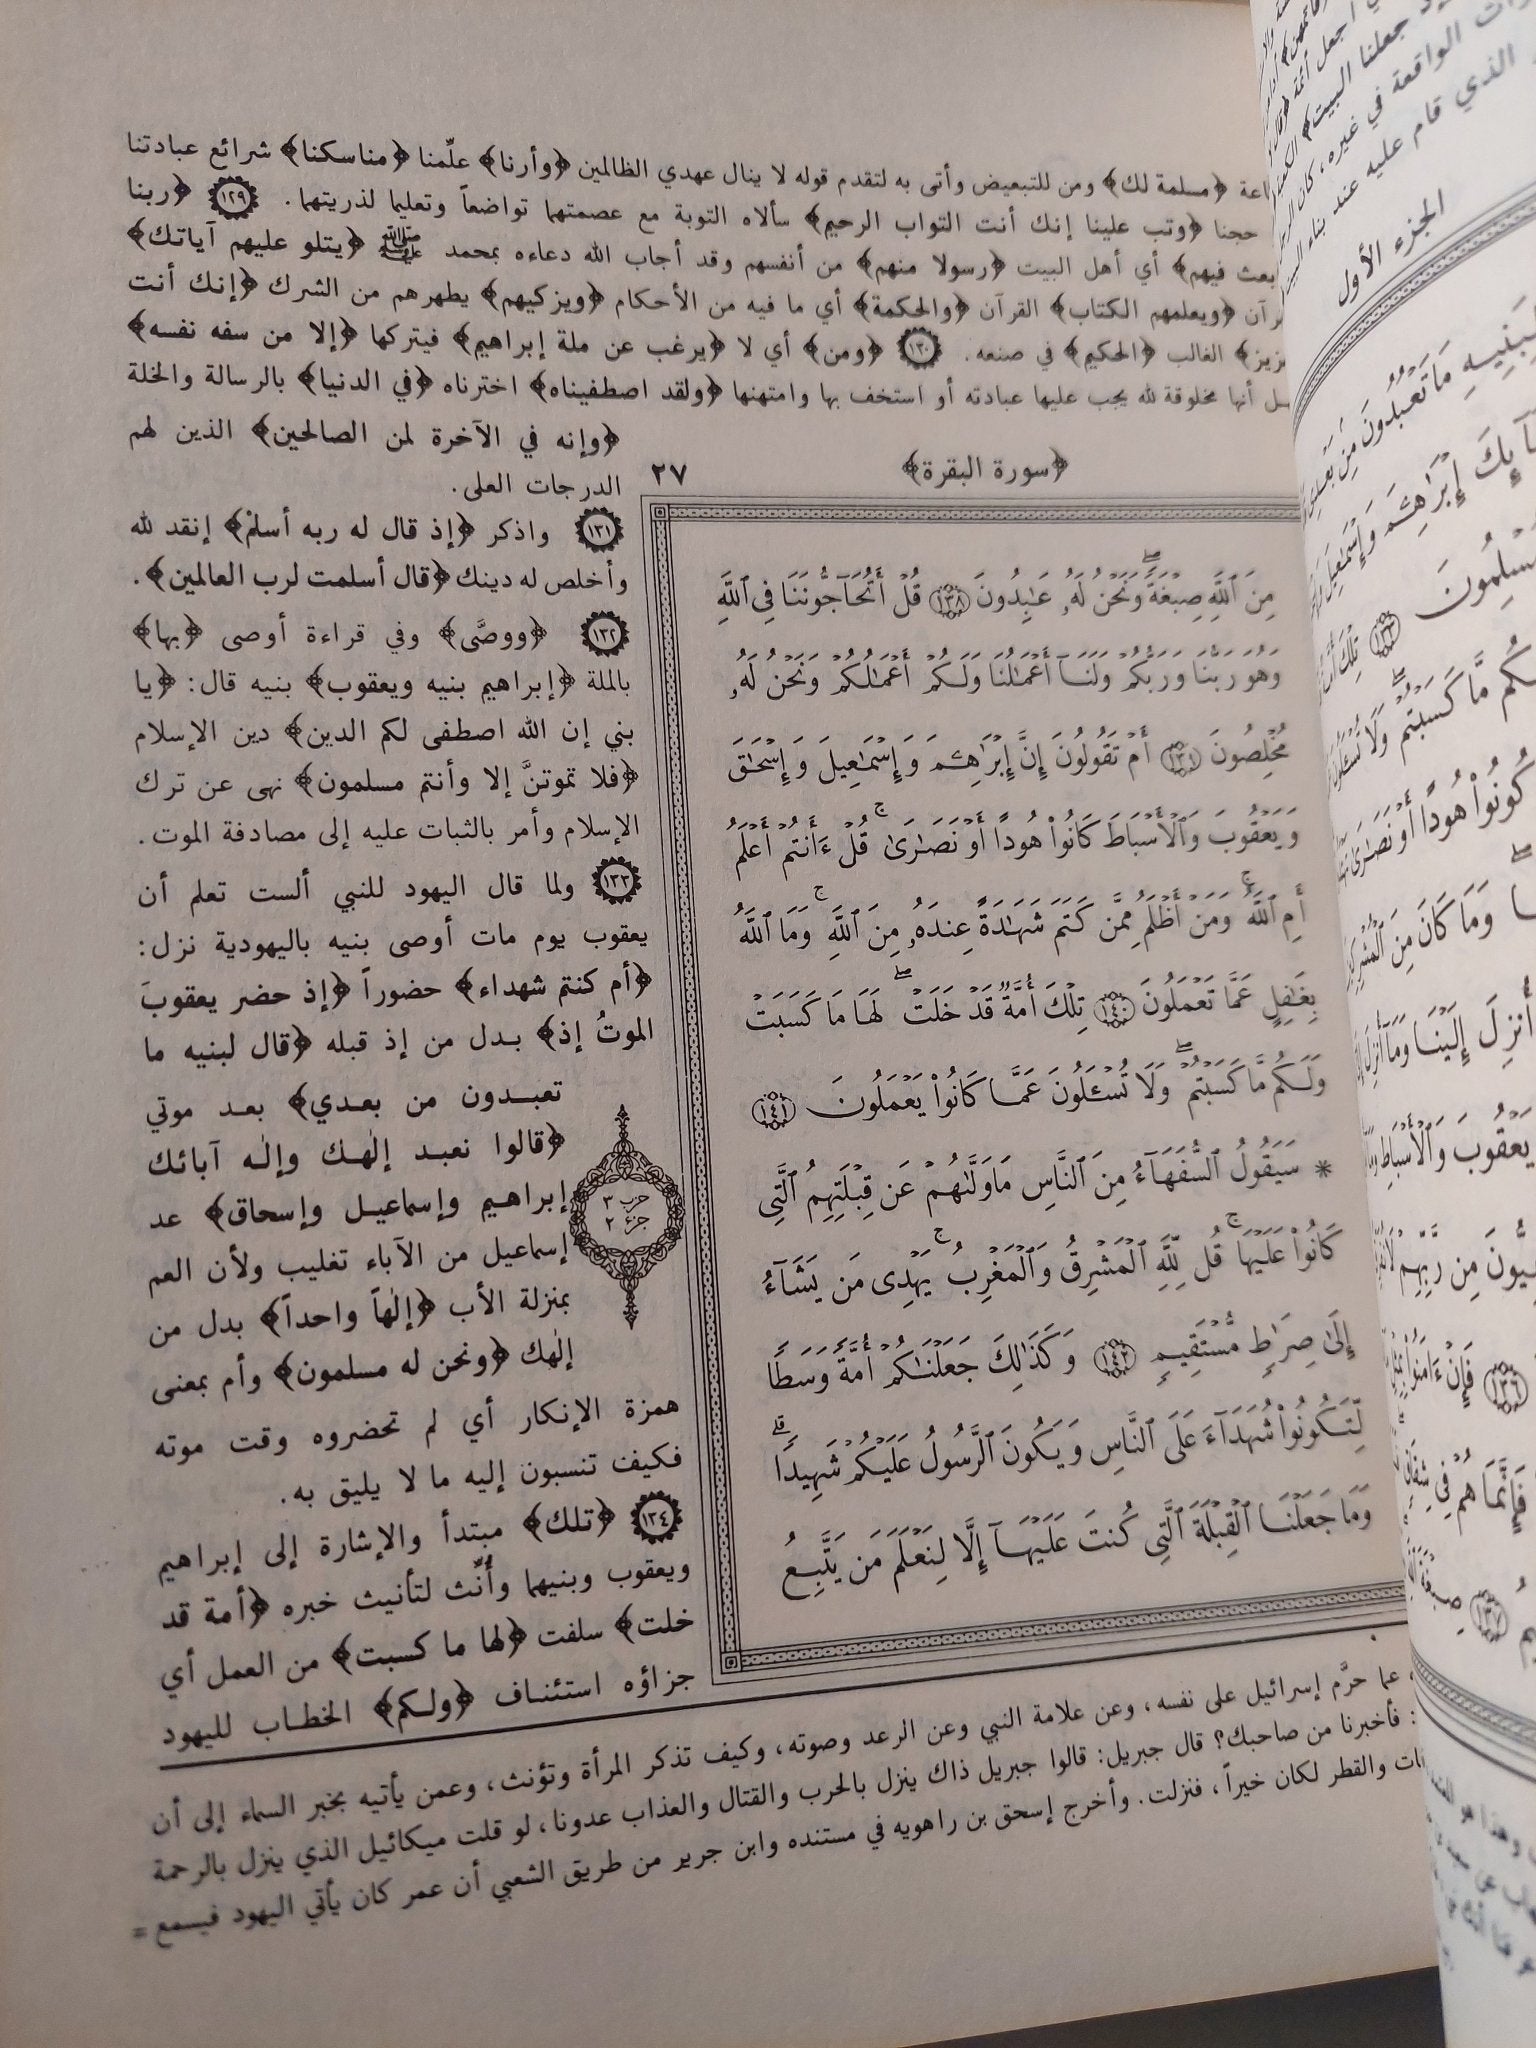 اعة ﴿مسلمة لك﴾ ومن للتبعيض وأتى به لتقدم قوله لا ينال عهدي الظالمين ﴿وأرنا﴾ علِّمنا ﴿مناسكنا﴾ شرائع عبادتنا
حجنا ﴿وتب علينا إنك أنت التواب الرحيم﴾ سألاه التوبة مع عصمتهما تواضعاً وتعليما لذريتهما. ١٢٩ ﴿ربنا
بعث فيهم﴾ أي أهل البيت ﴿رسولا منهم﴾ من أنفسهم وقد أجاب الله دعاءه بمحمد ﷺ ﴿يتلو عليهم آياتك﴾
رآن ﴿ويعلمهم الكتاب﴾ القرآن ﴿والحكمة﴾ أي ما فيه من الأحكام ﴿ويزكيهم﴾ يطهرهم من الشرك ﴿إنك أنت
زيز﴾ الغالب ﴿الحكيم﴾ في صنعه. ١٣٠ ﴿ومن﴾ أي لا ﴿يرغب عن ملة إبراهيم﴾ فيتركها ﴿إلا من سفه نفسه﴾
أنها مخلوقة لله يجب عليها عبادته أو استخف بها وامتهنها ﴿ولقد اصطفيناه﴾ اخترناه ﴿في الدنيا﴾ بالرسالة والخلة
﴿وإنه في الآخرة لمن الصالحين﴾ الذين لهم
الدرجات العلى.
١٣١ واذكر ﴿إذ قال له ربه أسلمْ﴾ إنقد لله
وأخلص له دينك ﴿قال أسلمت لرب العالمين﴾.
١٣٢ ﴿ووصَّى﴾ وفي قراءة أوصى ﴿بها﴾
بالملة ﴿إبراهيم بنيه ويعقوب﴾ بنيه قال: ﴿يا
بني إن الله اصطفى لكم الدين﴾ دين الإسلام
﴿فلا تموتنَّ إلا وأنتم مسلمون﴾ نهى عن ترك
الإسلام وأمر بالثبات عليه إلى مصادفة الموت.
١٣٣ ولما قال اليهود للنبي ألست تعلم أن
يعقوب يوم مات أوصى بنيه باليهودية نزل:
﴿أم كنتم شهداء﴾ حضوراً ﴿إذ حضر يعقوبَ
الموتُ إذ﴾ بدل من إذ قبله ﴿قال لبنيه ما
تعبدون من بعدي﴾ بعد موتي
﴿قالوا نعبد إلٰهك وإلٰه آبائك
إبراهيم وإسماعيل وإسحاق﴾ عد
إسماعيل من الآباء تغليب ولأن العم
بمنزلة الأب ﴿إلٰهاً واحداً﴾ بدل من
إلٰهك ﴿ونحن له مسلمون﴾ وأم بمعنى
همزة الإنكار أي لم تحضروه وقت موته
فكيف تنسبون إليه ما لا يليق به.
١٣٤ ﴿تلك﴾ مبتدأ والإشارة إلى إبراهيم
ويعقوب وبنيهما وأُنِّث لتأنيث خبره ﴿أمة قد
خلت﴾ سلفت ﴿لها ما كسبت﴾ من العمل أي
جزاؤه استئناف ﴿ولكم﴾ الخطاب لليهود
حزب ٣
جزء ٢
﴿سورة البقرة﴾ ٢٧
مِنَ ٱللَّهِ صِبْغَةً ۖ وَنَحْنُ لَهُۥ عَـٰبِدُونَ ١٣٨ قُلْ أَتُحَآجُّونَنَا فِى ٱللَّهِ
وَهُوَ رَبُّنَا وَرَبُّكُمْ وَلَنَآ أَعْمَـٰلُنَا وَلَكُمْ أَعْمَـٰلُكُمْ وَنَحْنُ لَهُۥ
مُخْلِصُونَ ١٣٩ أَمْ تَقُولُونَ إِنَّ إِبْرَٰهِـۧمَ وَإِسْمَـٰعِيلَ وَإِسْحَـٰقَ
وَيَعْقُوبَ وَٱلْأَسْبَاطَ كَانُوا۟ هُودًا أَوْ نَصَـٰرَىٰ ۗ قُلْ ءَأَنتُمْ أَعْلَمُ
أَمِ ٱللَّهُ ۗ وَمَنْ أَظْلَمُ مِمَّن كَتَمَ شَهَـٰدَةً عِندَهُۥ مِنَ ٱللَّهِ ۗ وَمَا ٱللَّهُ
بِغَـٰفِلٍ عَمَّا تَعْمَلُونَ ١٤٠ تِلْكَ أُمَّةٌ قَدْ خَلَتْ ۖ لَهَا مَا كَسَبَتْ
وَلَكُم مَّا كَسَبْتُمْ ۖ وَلَا تُسْـَٔلُونَ عَمَّا كَانُوا۟ يَعْمَلُونَ ١٤١
* سَيَقُولُ ٱلسُّفَهَآءُ مِنَ ٱلنَّاسِ مَا وَلَّىٰهُمْ عَن قِبْلَتِهِمُ ٱلَّتِى
كَانُوا۟ عَلَيْهَا ۚ قُل لِّلَّهِ ٱلْمَشْرِقُ وَٱلْمَغْرِبُ ۚ يَهْدِى مَن يَشَآءُ
إِلَىٰ صِرَٰطٍ مُّسْتَقِيمٍ ١٤٢ وَكَذَٰلِكَ جَعَلْنَـٰكُمْ أُمَّةً وَسَطًا
لِّتَكُونُوا۟ شُهَدَآءَ عَلَى ٱلنَّاسِ وَيَكُونَ ٱلرَّسُولُ عَلَيْكُمْ شَهِيدًا ۗ
وَمَا جَعَلْنَا ٱلْقِبْلَةَ ٱلَّتِى كُنتَ عَلَيْهَآ إِلَّا لِنَعْلَمَ مَن يَتَّبِعُ
عما حرَّم إسرائيل على نفسه، وعن علامة النبي وعن الرعد وصوته، وكيف تذكر المرأة وتؤنث، وعمن يأتيه بخبر السماء إلى أن
: فأخبرنا من صاحبك؟ قال جبريل: قالوا جبريل ذاك ينزل بالحرب والقتال والعذاب عدونا، لو قلت ميكائيل الذي ينزل بالرحمة
ات والقطر لكان خيراً، فنزلت. وأخرج إسحق بن راهويه في مستنده وابن جرير من طريق الشعبي أن عمر كان يأتي اليهود فيسمع =
جعلنا البيت﴾
الواقعة في غيره، كان
الذي قام عليه عند بناء
الجزء الأول
مَا تَعْبُدُونَ مِنۢ بَعْدِى
إِبْرَٰهِـۧمَ وَإِسْمَـٰعِيلَ
١٣٣ تِلْكَ
مَّا كَسَبْتُمْ ۖ وَلَا
كُونُوا۟ هُودًا أَوْ نَصَـٰرَىٰ
وَمَا كَانَ مِنَ
أُنزِلَ إِلَيْنَا وَمَآ أُنزِلَ
يَعْقُوبَ وَٱلْأَسْبَاطِ
مِن رَّبِّهِمْ
١٣٦ فَإِنْ ءَامَنُوا۟
فَإِنَّمَا هُمْ فِى شِقَاقٍ
١٣٧ صِبْغَةَ